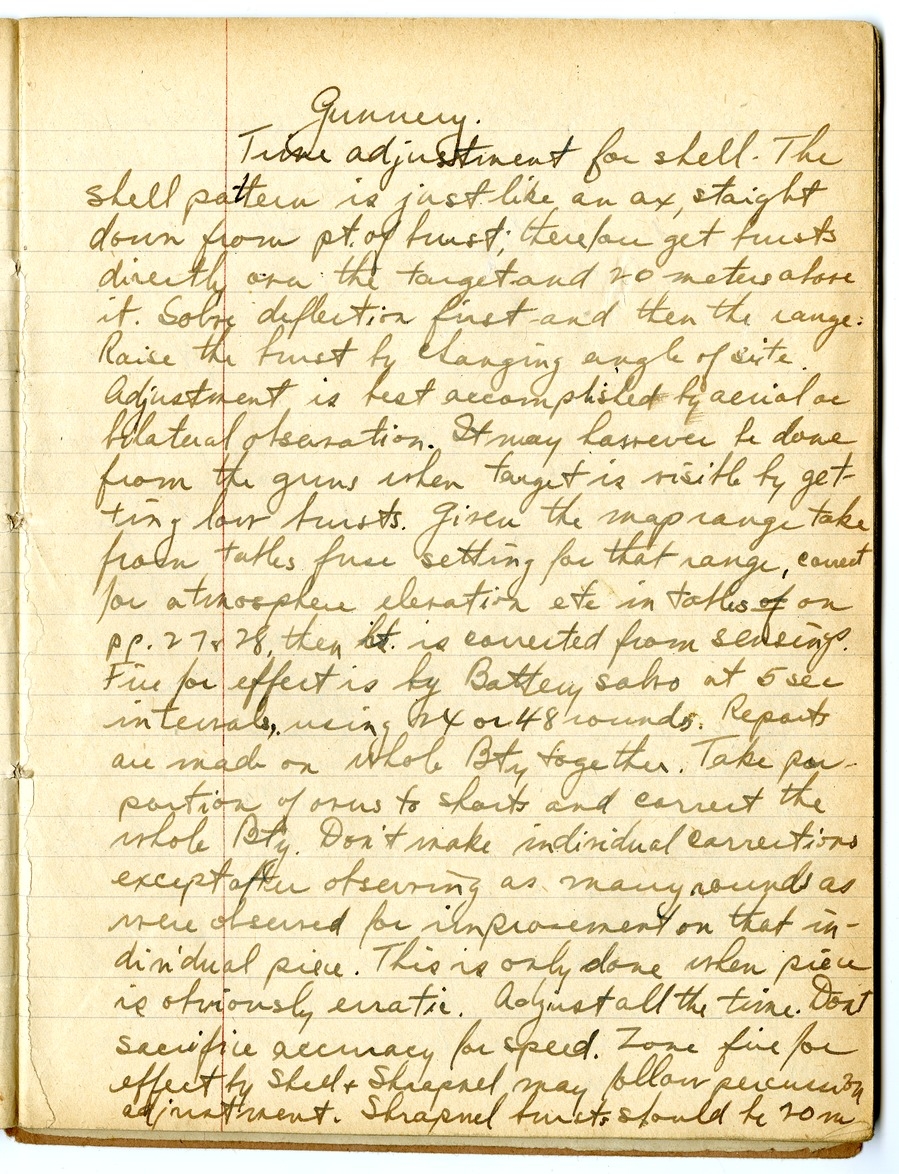 Gunnery.
Time adjustment for shell. The
shell pattern is just like an ax, staight
down from pt. of burst; therefore get bursts
directly over the target and 20 meters above
it. Solve deflection first and then the range.
Raise the burst by changing angle of site.
Adjustment is best accomplished by aerial or
bilateral observation. It may however be done
from the guns when target is visible by get-
ting low bursts. Given the map range take
from tables fuse setting for that range, correct
for atmosphere elevation etc in tables of on
pp. 27 & 28, then it. is corrected from sensings.
Fire for effect is by Battery salvo at 5 sec
intervals, using 24 or 48 rounds. Reports
are made on whole Bty together. Take por-
portion of overs to shorts and correct the
whole Bty. Don't make individual corrections
except after observing as many rounds as
were observed for improvement on that in-
dividual piece. This is only done when piece
is obviously erratic. Adjust all the time. Don't
sacrifice accuracy for speed. Zone fire for
effect by Shell & Shrapnel may follow percussion
adjustment. Shrapnel bursts should be 20 m